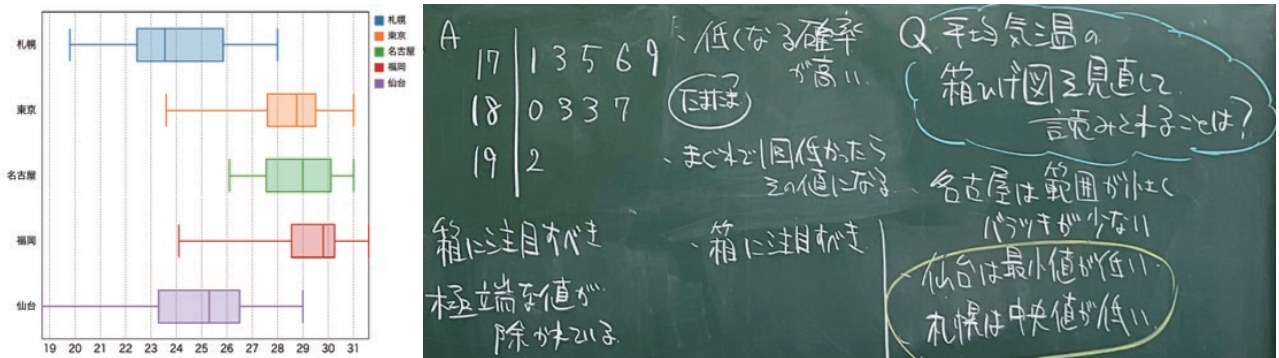 札幌
東京
名古屋
福岡
仙台
札幌
東京
名古屋
福岡
仙台
19 20 21 22 23 24 25 26 27 28 29 30 31
A
17 1 3 5 6 9
18 0 3 3 7
19 2
箱に注目すべき
極端な値が
除かれている
・低くなる確率
が高い
たまたま
・まぐれで1回低かったら
その値になる
・箱に注目すべき
Q 平均気温の
箱ひげ図を見直して
読みとれることは?
名古屋は範囲が小さく
バラツキが少ない
仙台は最小値が低い
札幌は中央値が低い